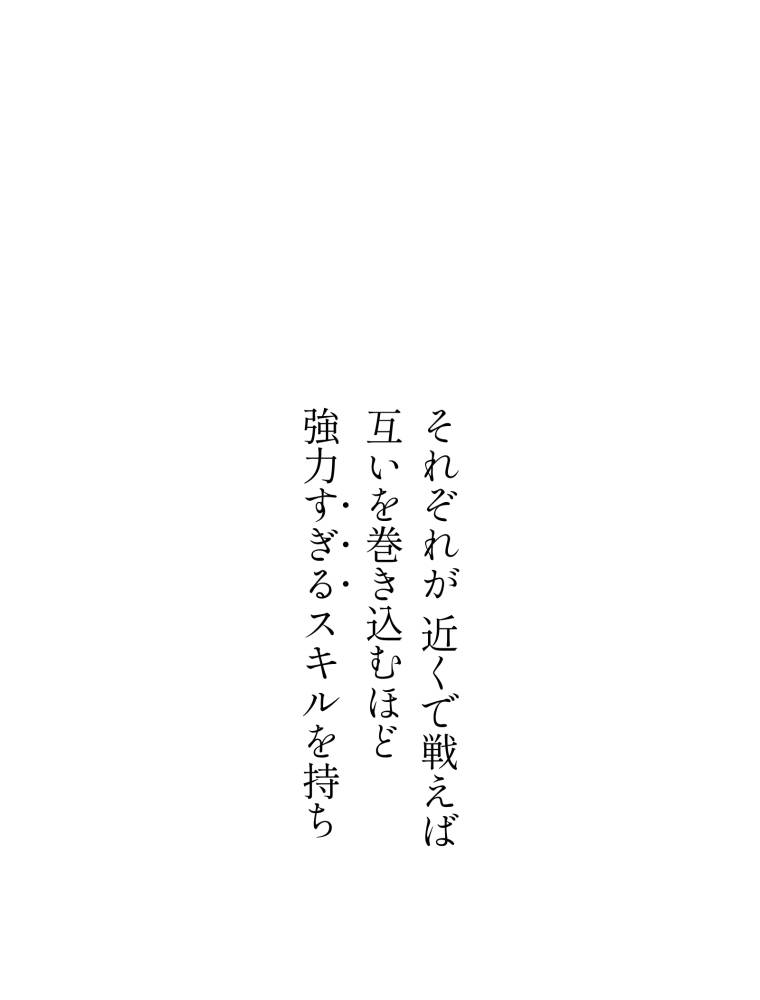 それぞれが 近くで戦えば
互いを巻き込むほど
強力すぎるスキルを持ち